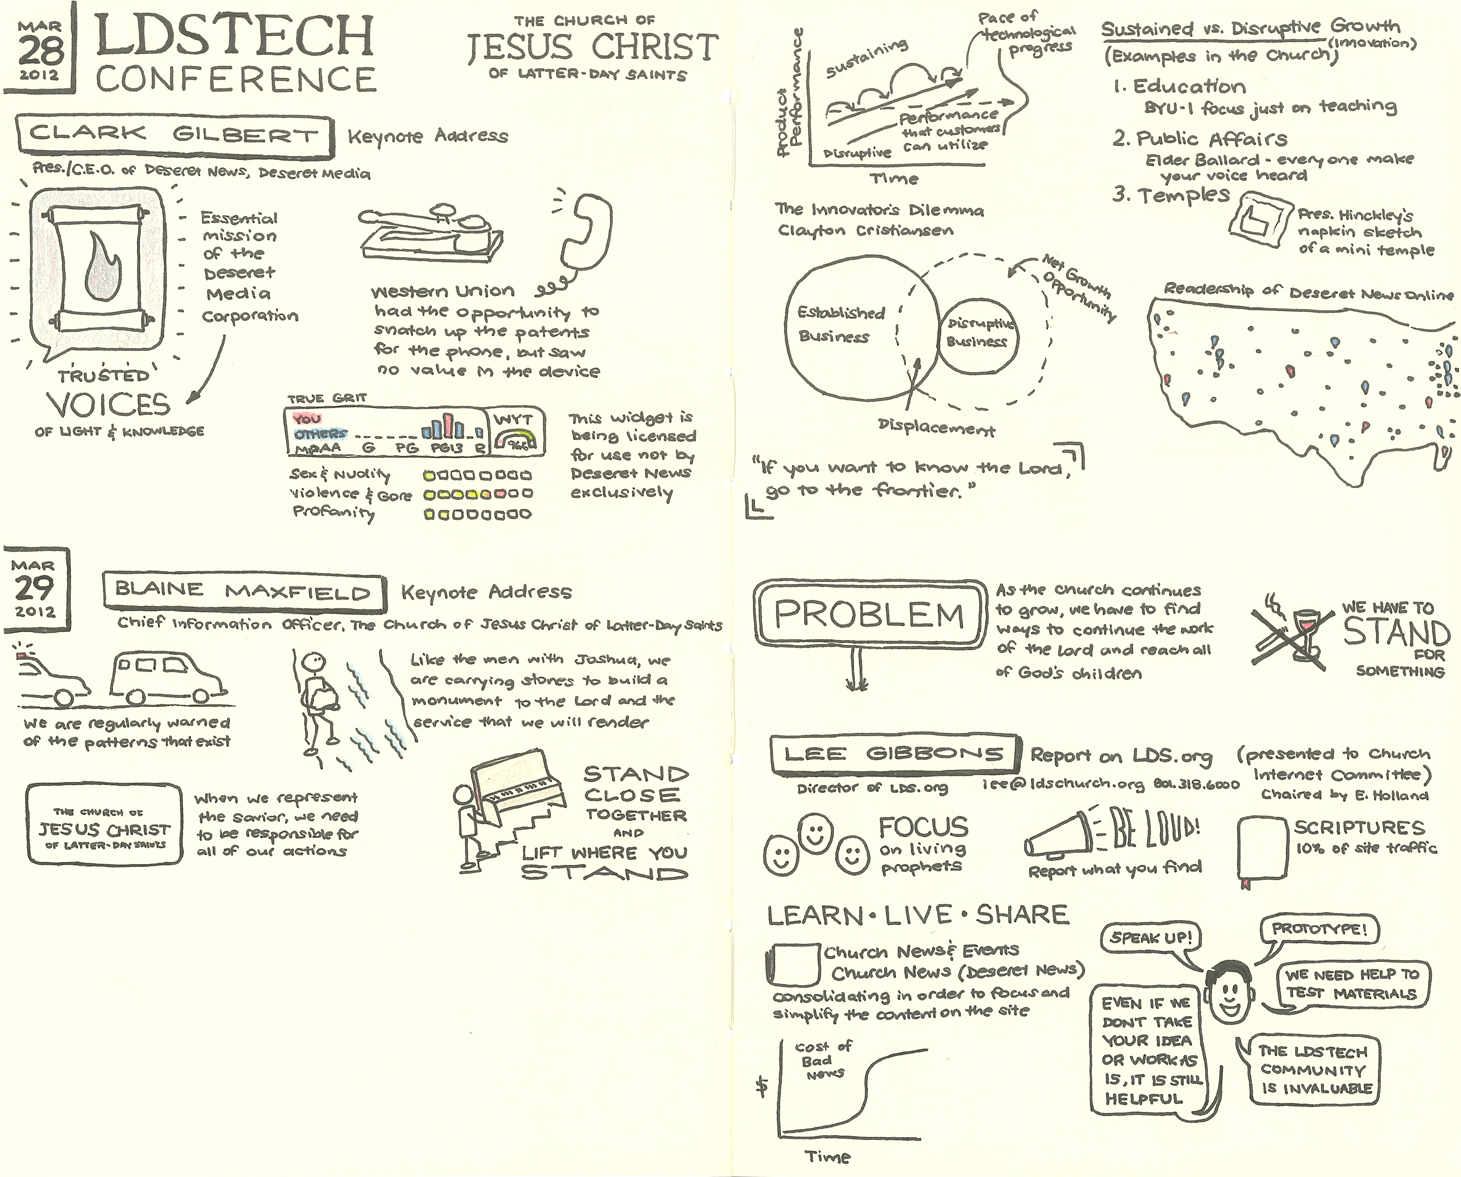 MAR
28
2012
LDSTECH
CONFERENCE
THE CHURCH OF
JESUS CHRIST
OF LATTER-DAY SAINTS
CLARK GILBERT
Keynote Address
Pres./C.E.O. of Deseret News, Deseret Media
Essential
mission
of the
Deseret
Media
Corporation
TRUSTED
VOICES
OF LIGHT & KNOWLEDGE
Western Union
had the opportunity to
snatch up the patents
for the phone, but saw
no value in the device
TRUE GRIT
YOU
OTHERS
MPAA G PG PG13 R
WYT
Sex & Nudity
Violence & Gore
Profanity
This widget is
being licensed
for use not by
Deseret News
exclusively
Product
Performance
sustaining
Pace of
technological
progress
Performance
that customers
can utilize
Disruptive
Time
The Innovator's Dilemma
Clayton Cristiansen
Established
Business
Disruptive
Business
Net Growth
Opportunity
Displacement
"If you want to know the Lord,
go to the frontier."
Sustained vs. Disruptive Growth
(Innovation)
(Examples in the Church)
1. Education
BYU-I focus just on teaching
2. Public Affairs
Elder Ballard - everyone make
your voice heard
3. Temples
Pres. Hinckley's
napkin sketch
of a mini temple
Readership of Deseret News Online
MAR
29
2012
BLAINE MAXFIELD
Keynote Address
Chief Information Officer, The Church of Jesus Christ of Latter-Day Saints
We are regularly warned
of the patterns that exist
Like the men with Joshua, we
are carrying stones to build a
monument to the Lord and the
service that we will render
THE CHURCH OF
JESUS CHRIST
OF LATTER-DAY SAINTS
When we represent
the Savior, we need
to be responsible for
all of our actions
STAND
CLOSE
TOGETHER
AND
LIFT WHERE YOU
STAND
PROBLEM
As the church continues
to grow, we have to find
ways to continue the work
of the Lord and reach all
of God's children
WE HAVE TO
STAND
FOR
SOMETHING
LEE GIBBONS
Report on LDS.org
(presented to Church
Internet Committee)
Chaired by E. Holland
Director of LDS.org
lee@ldschurch.org 801.318.6000
FOCUS
on living
prophets
BE LOUD!
Report what you find
SCRIPTURES
10% of site traffic
LEARN • LIVE • SHARE
Church News & Events
Church News (Deseret News)
consolidating in order to focus and
simplify the content on the site
$
Cost of
Bad
News
Time
SPEAK UP!
PROTOTYPE!
WE NEED HELP TO
TEST MATERIALS
EVEN IF WE
DON'T TAKE
YOUR IDEA
OR WORK AS
IS, IT IS STILL
HELPFUL
THE LDSTECH
COMMUNITY
IS INVALUABLE